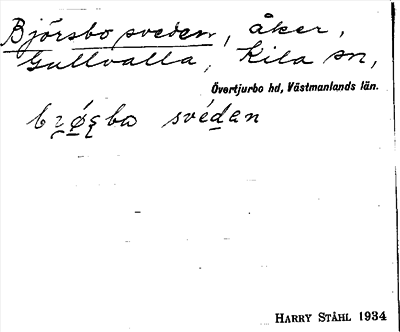 Björsbo sveden, åker,
Gullvalla, Kila sn,
Övertjurbo hd, Västmanlands län.
svédan
HARRY STÅHL 1934